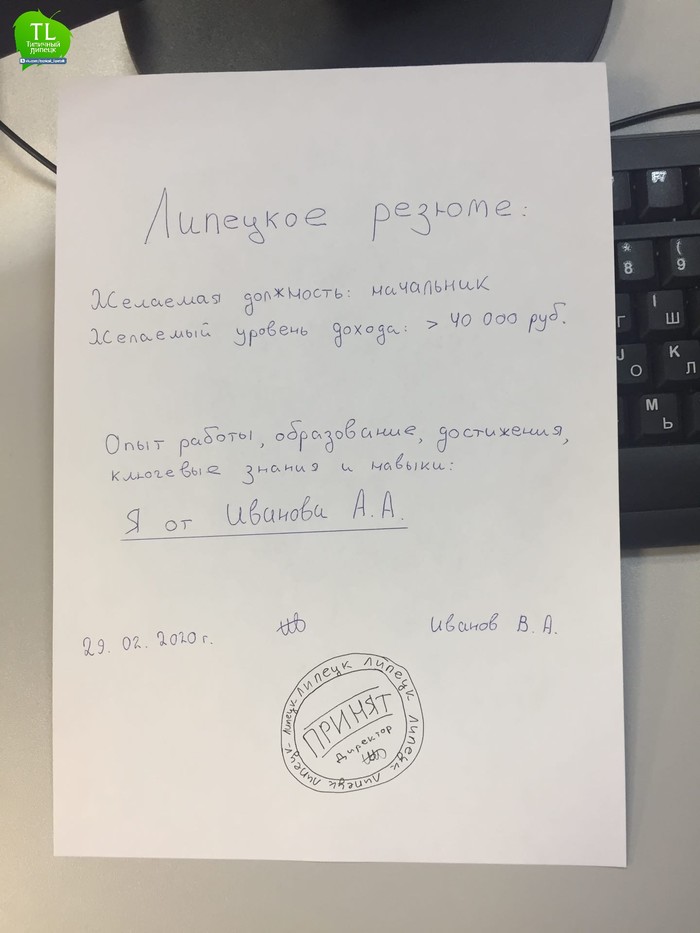 TL
Типичный
Липецк
Липецкое резюме:
Желаемая должность: начальник
Желаемый уровень дохода: > 40 000 руб.
Опыт работы, образование, достижения,
ключевые знания и навыки:
Я от Иванова А.А.
29.02.2020 г.
Иванов В.А.
Липецк Липецк Липецк Липецк Липецк Липецк Липецк
ПРИНЯТ
Директор
F7
* 8
( 9
Г
I Ш
J О
K Л
M Ь